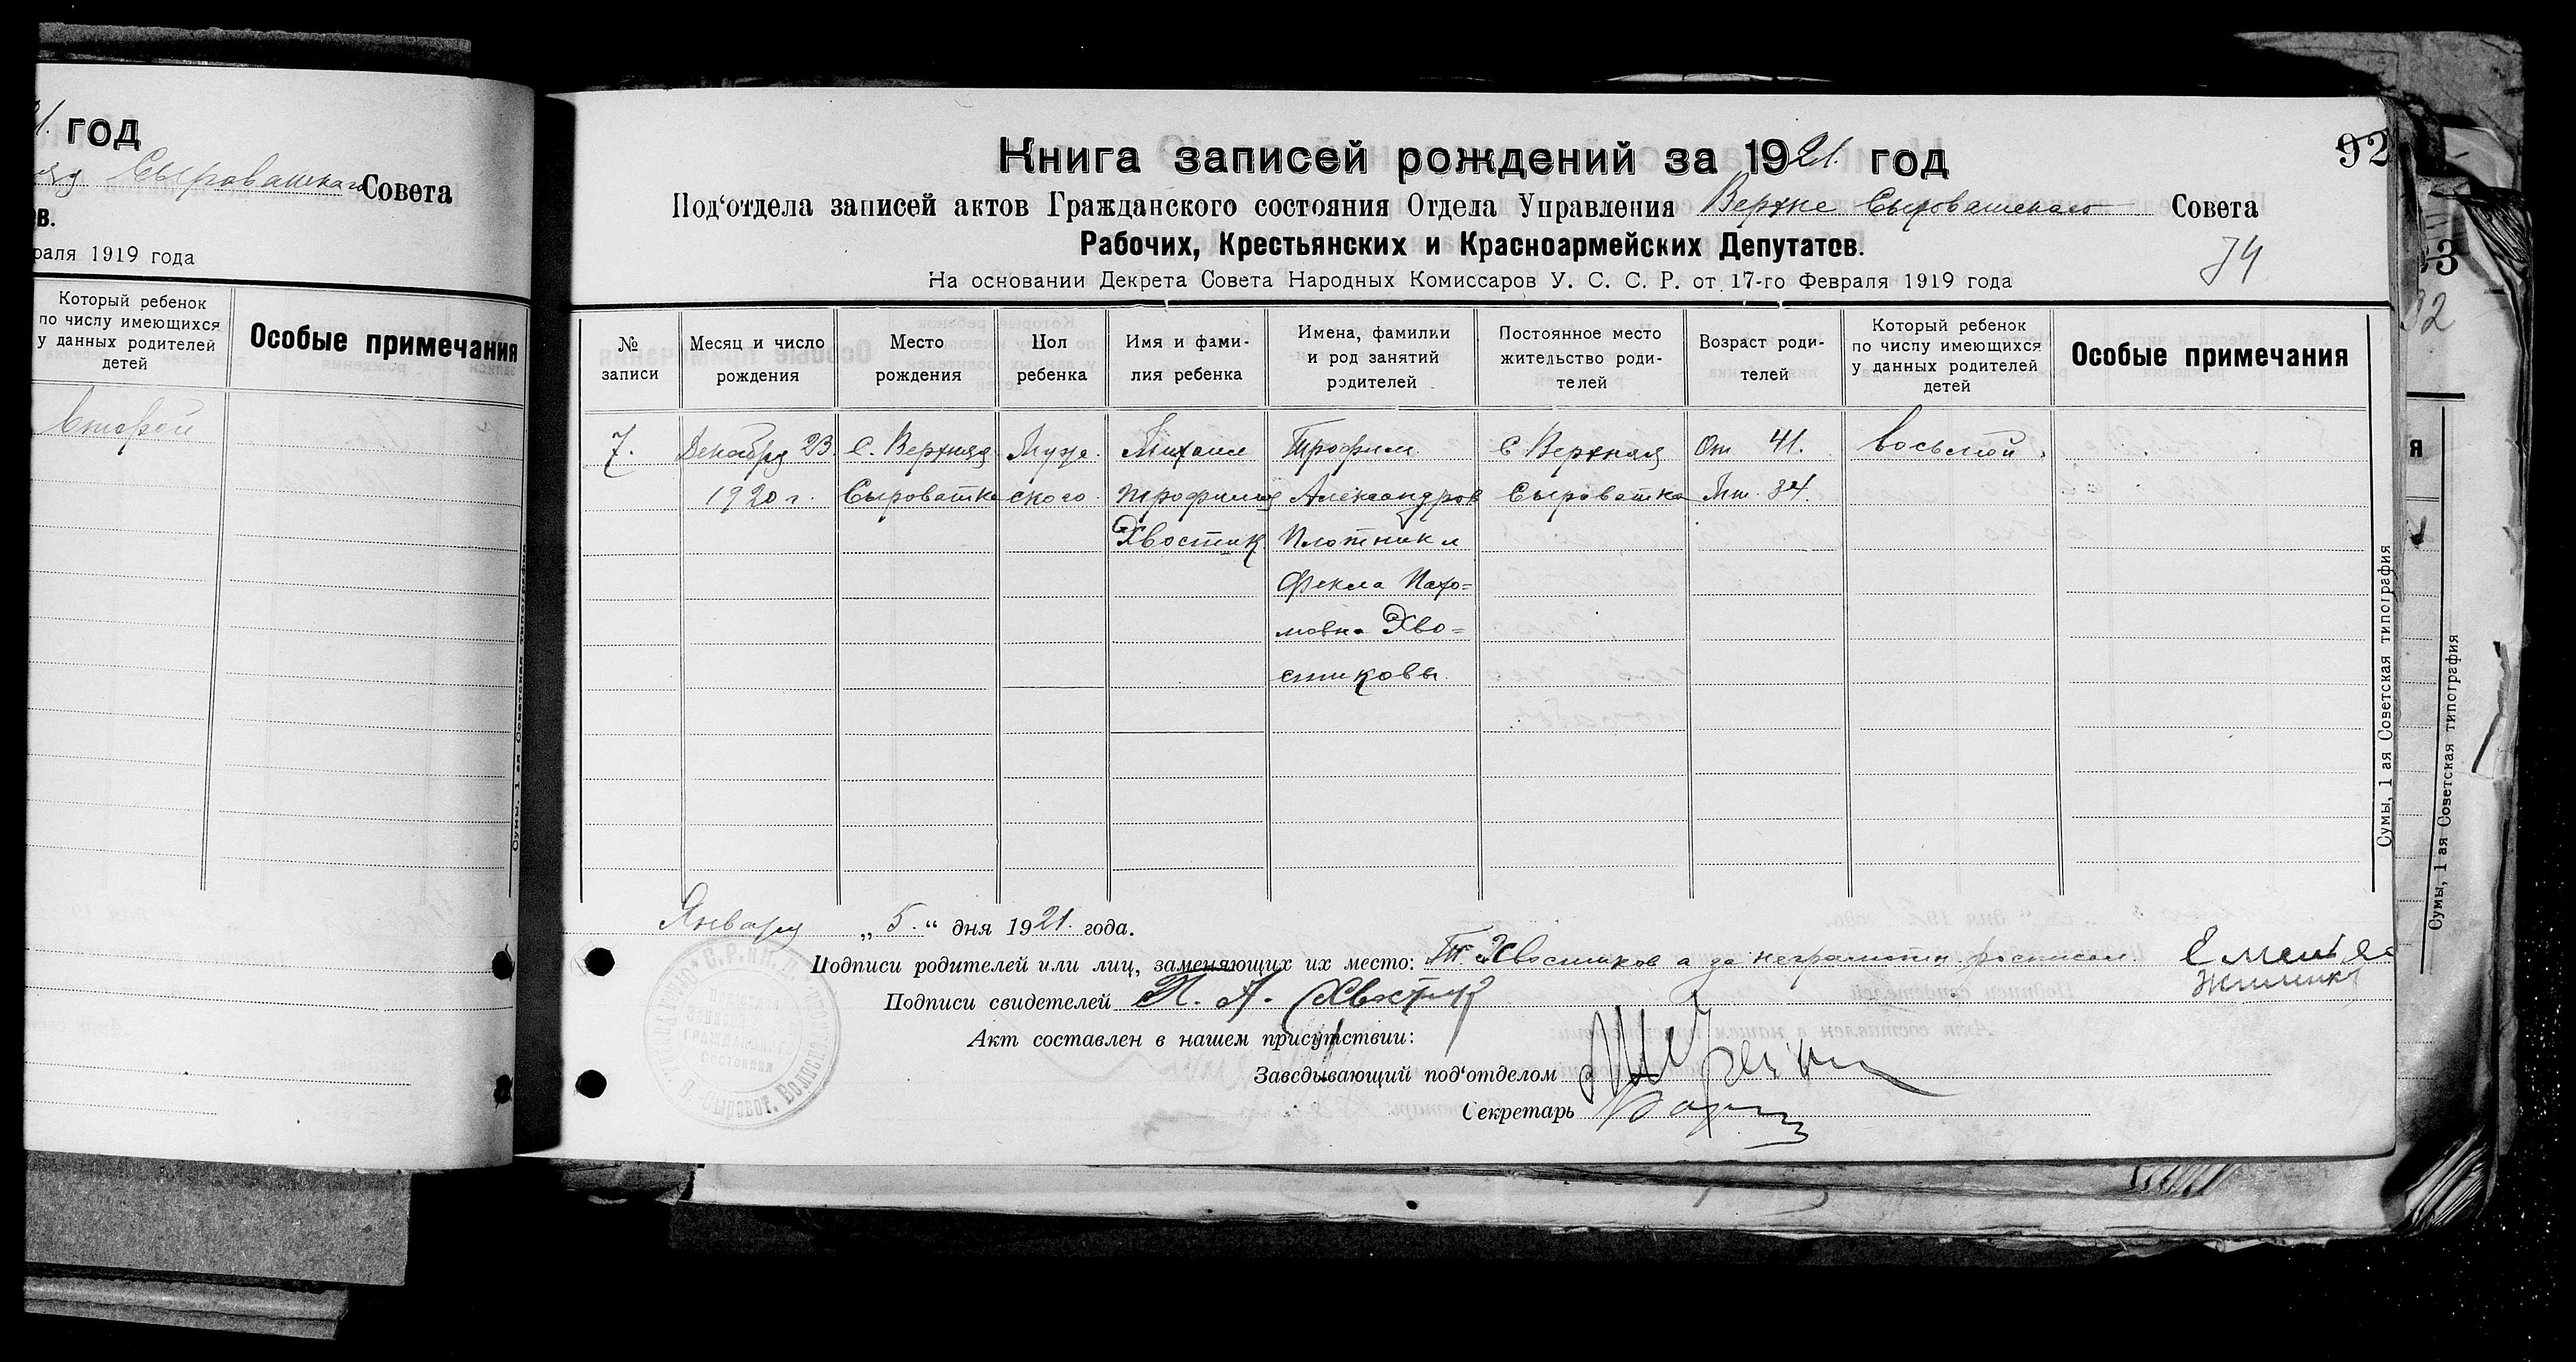 21. год
Сыроватского Совета
ов.
раля 1919 года
Который ребенок
по числу имеющихся
у данных родителей
детей
Особые примечания
Второй
Сумы, 1 ая Советская типография
Книга записей рождений за 1921. год
92
Под‘отдела записей актов Гражданского состояния Отдела Управления Верхне Сыроватского Совета
Рабочих, Крестьянских и Красноармейских Депутатов.
74
На основании Декрета Совета Народных Комиссаров У. С. С. Р. от 17-го Февраля 1919 года
№
записи
Месяц и число
рождения
Место
рождения
Пол
ребенка
Имя и фами-
лия ребенка
Имена, фамилии
и род занятий
родителей
Постоянное место
жительство роди-
телей
Возраст роди-
телей
Который ребенок
по числу имеющихся
у данных родителей
детей
Особые примечания
7.
Декабря 23
1920 г.
С. Верхняя
Сыроватка
Муже
ского
Михаил
Трофимов
Хвостик
Трофим
Александров
Плотник и
Фекла Пахо=
мовна Хво=
стиковы.
С Верхняя
Сыроватка
От 41.
Мт. 34.
Восьмой
Сумы, 1 ая Советская типография
Января „ 5. “ дня 1921. года.
Подписи родителей или лиц, заменяющих их место: Т. Хвостиков а за неграмотн. росписал.
Подписи свидетелей П. А. Хвостик
Акт составлен в нашем присутствии:
Заведывающий под‘отделом
Секретарь
93
92
я
Сумы, 1 ая Советская типография